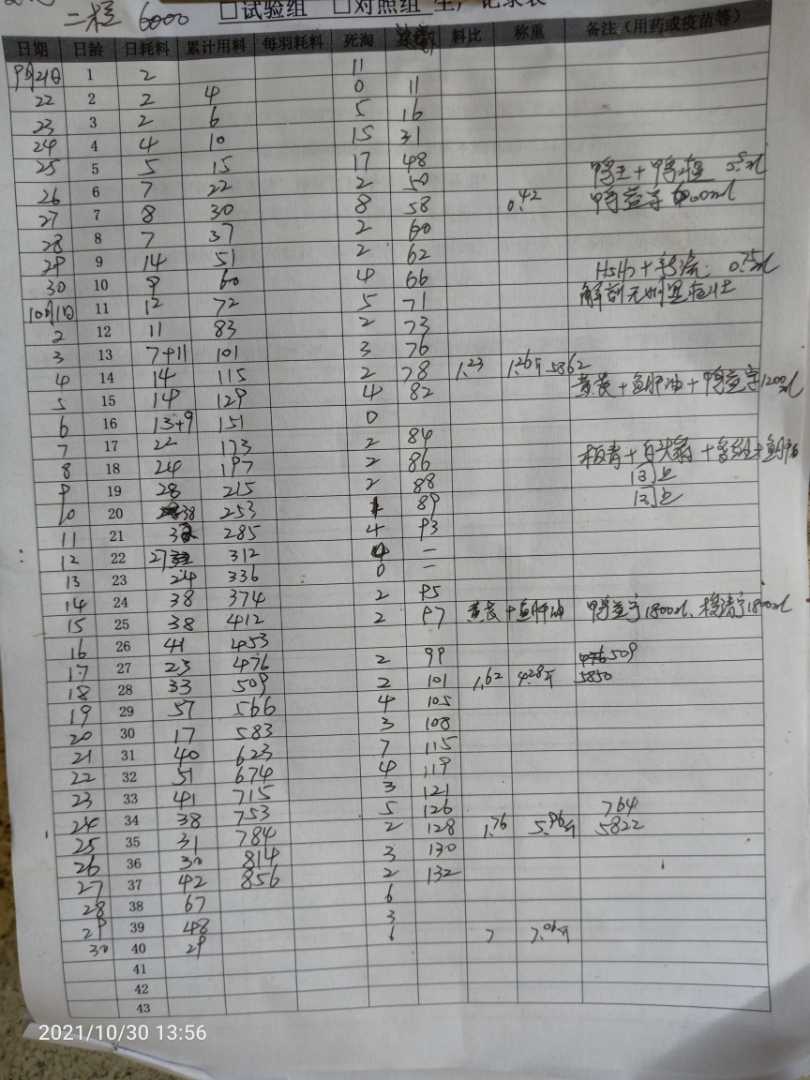 二栏 6000 □试验组 □对照组 生产记录表
日期 日龄 日耗料 累计用料 每羽耗料 死淘 料比 称重 备注（用药或疫苗等）
9月21日 1 2 11
22 2 2 4 0 11
23 3 2 6 5 16
24 4 4 10 15 31
25 5 5 15 17 48
26 6 7 22 2 50
27 7 8 30 8 58 0.42
28 8 7 37 2 60
29 9 14 51 2 62
30 10 9 60 4 66
10月1日 11 12 72 5 71
2 12 11 83 2 73
3 13 7+11 101 3 76
4 14 14 115 2 78 1.23 1.26斤 5862
5 15 14 129 4 82
6 16 13+9 151 0
7 17 22 173 2 84
8 18 24 197 2 86 同上
9 19 28 215 2 88 同上
10 20 38 253 1 89
11 21 32 285 4 93
12 22 27 312 —
13 23 24 336 0 —
14 24 38 374 2 95
15 25 38 412 2 97 黄芪+鱼肝油
16 26 41 453
17 27 23 476 2 99 509
18 28 33 509 2 101 1.62 4.28斤 5850
19 29 57 566 4 105
20 30 17 583 3 108
21 31 40 623 7 115
22 32 51 674 4 119
23 33 41 715 3 121
24 34 38 753 5 126 764
25 35 31 784 2 128 1.76 5.96斤 5822
26 36 30 814 3 130
27 37 42 856 2 132
28 38 67 6
29 39 48 3
30 40 29
41
42
43
2021/10/30 13:56